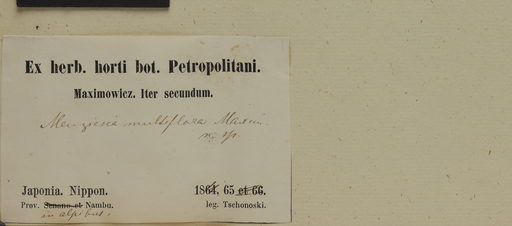 Ex herb. horti bot. Petropolitani.
Maximowicz. Iter secundum.
Menziesia multiflora Maxim.
n. sp.
Japonia. Nippon. 1864, 65 et 66.
Prov. Senano et Nambu. leg. Tschonoski.
in alpibus.